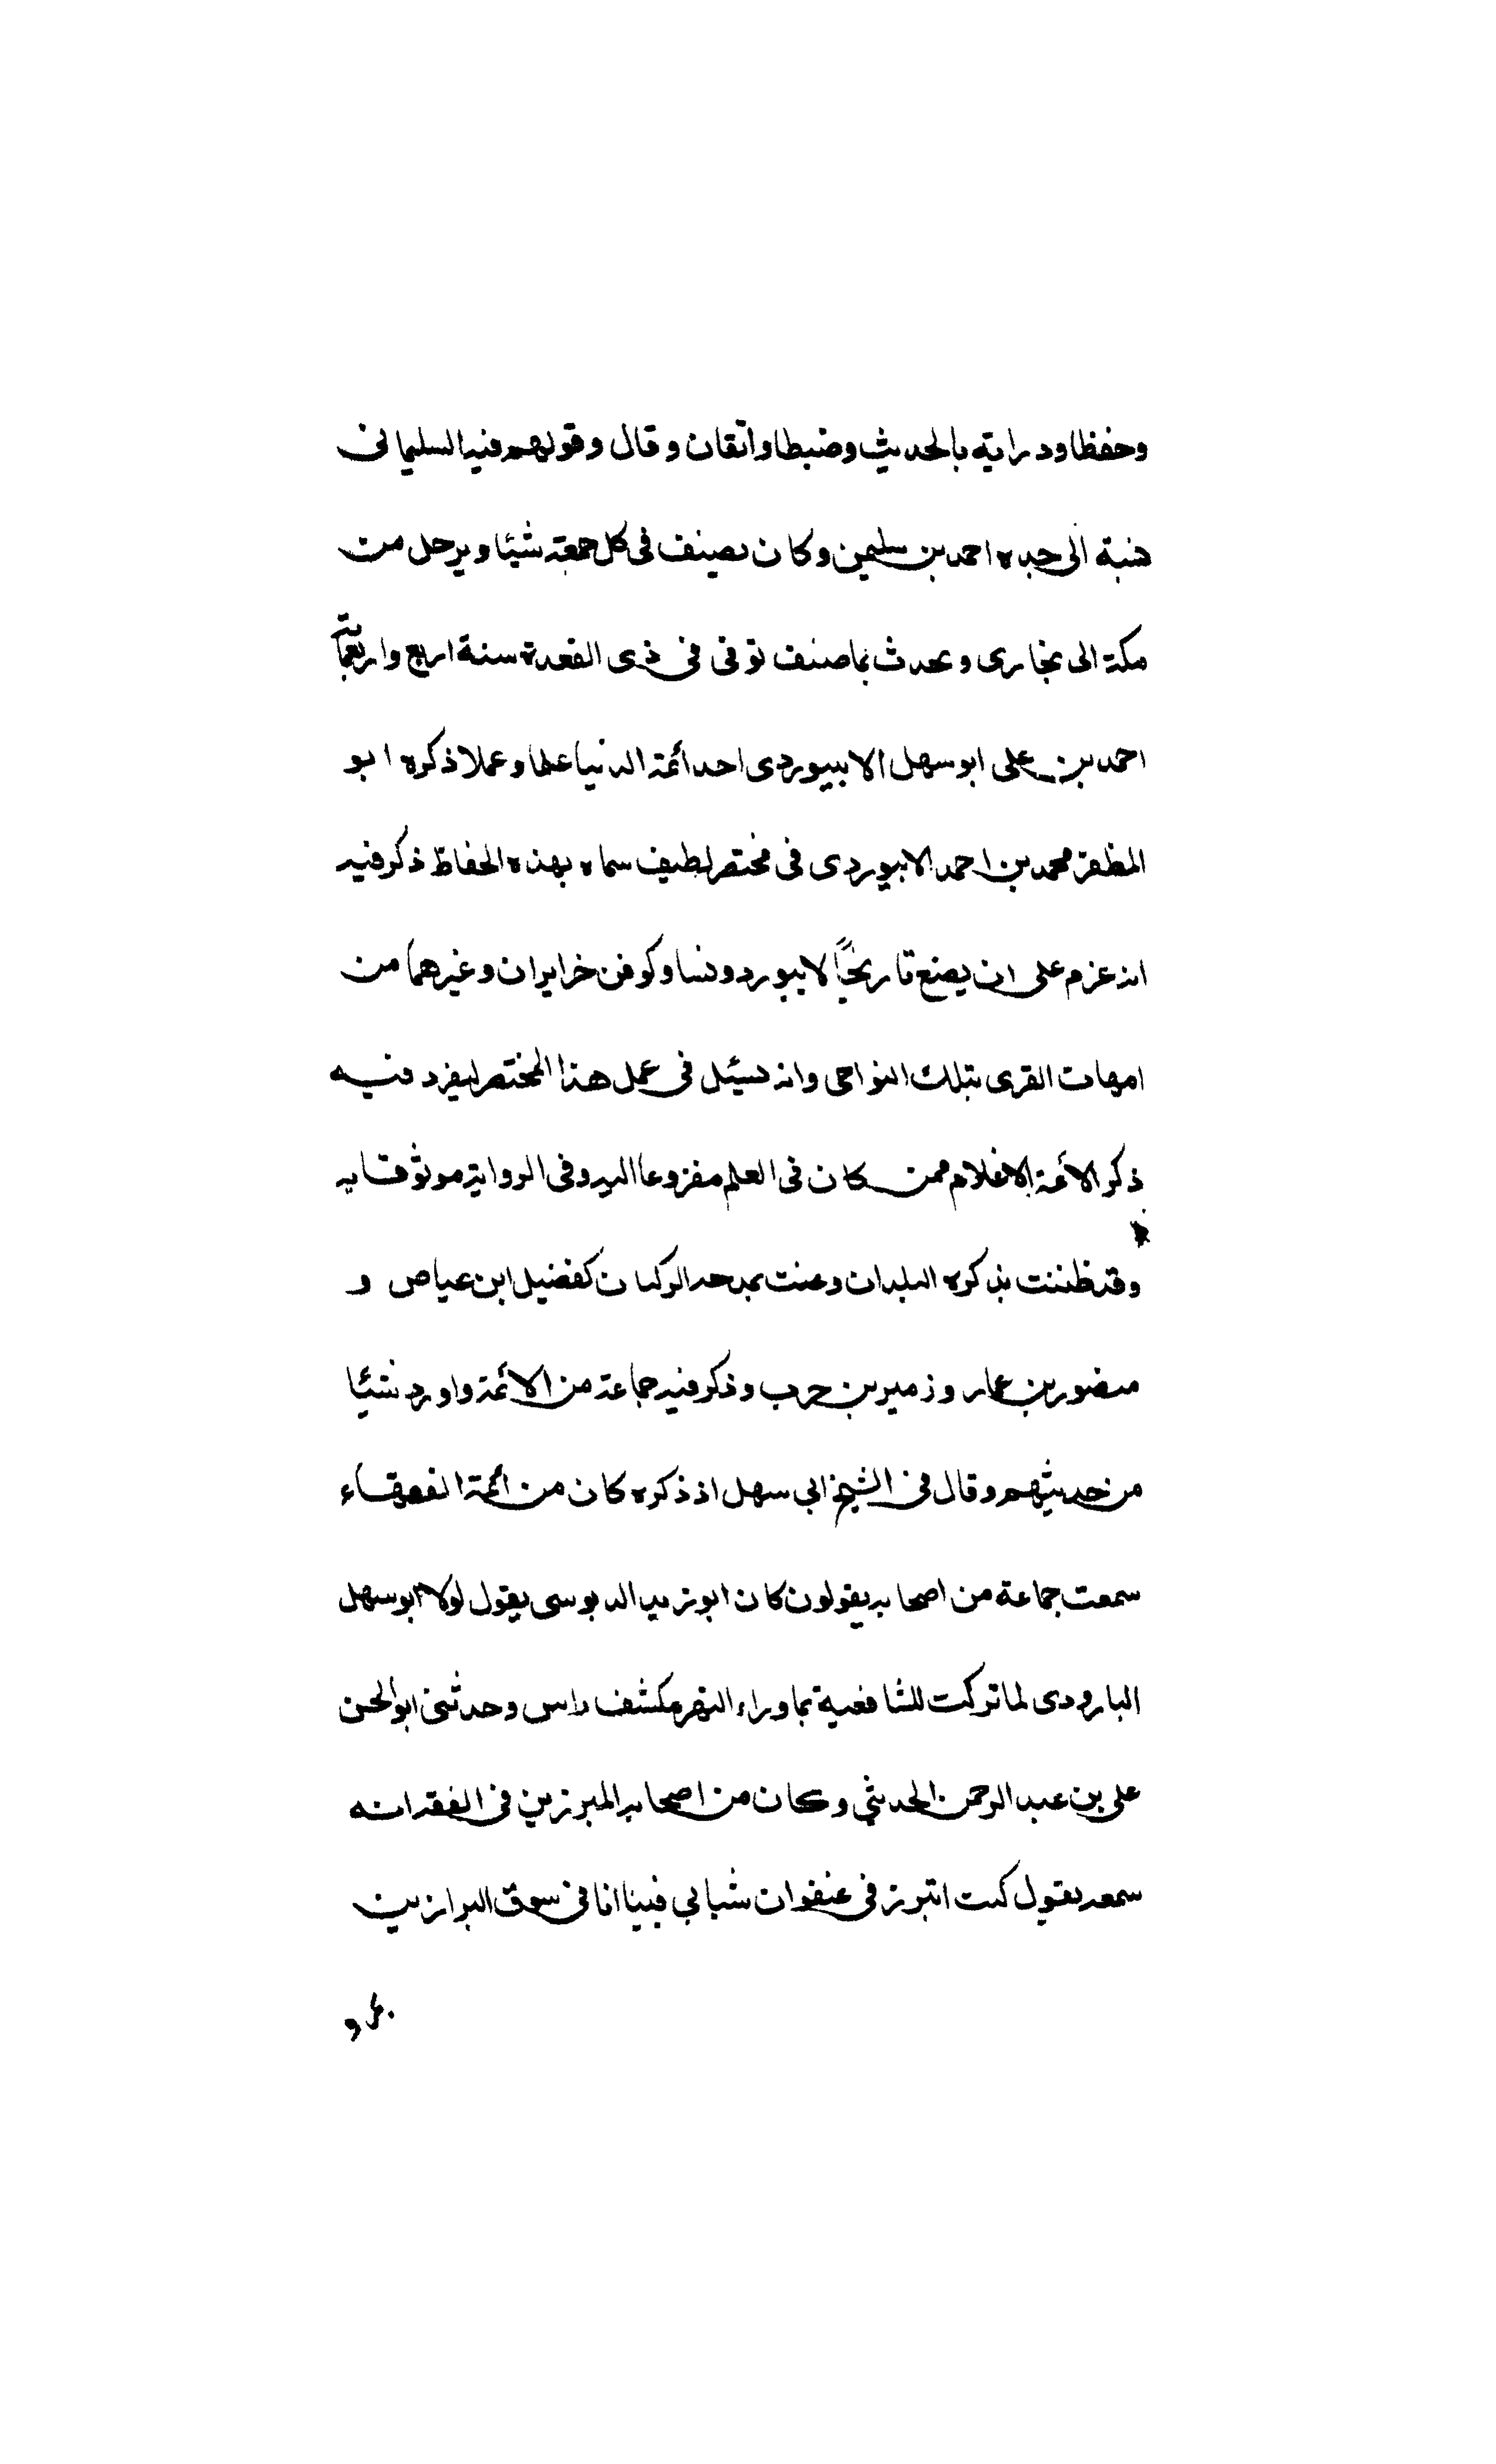 وحفظا ودراية بالحديث وضبطا واتقان وقال وقولهم فيه السليمانى
نسبة الى جده احمد بن سليمن وكان يصنف فى كل جمعة شيئا ويرحل من
مكة الى بخارى ويحدث بما صنف توفى فى ذى القعدة سنة اربع واربعمائة
احمد بن على ابو سهل الابيوردى احد أئمة الدنيا علما وعملا ذكره ابو
المظفر محمد بن احمد الابيوردى فى مختصر لطيف سماه بهذه الحفاظ ذكر فيه
انه عزم على ان يصنع تاريخًا لابيورد ونسا وكوفن خرايران وغيرهما من
امهات القرى بتلك النواحى وانه سئيل فى عمل هذا المختصر ليفرد فيه
ذكر الائمة الاعلام ممن كان فى العلم مفزوعا اليه وفى الرواية موثوقا به
وقد ظننت بذكره البلدان وعنت بمدحه الركبان كفضيل ابن عياص و
منصور بن عمار وزمير بن حرب وذكر فيه جماعة من الائمة واورد شيئا
من حديثهم وقال فى الشيخ ابي سهل اذ ذكره كان من ائمة الفقهاء
سمعت جماعة من اصحابه يقولون كان ابو زيد الدبوسى يقول لولا ابو سهل
البارودى لما تركت للشافعية بما وراء النهر مكشف راس وحدثنى ابو الحسن
على بن عبد الرحمن الحديثي وكان من اصحابه المبرزين فى الفقه انه
سمعه يقول كنت اتبرز فى عنفوان شبابي فبينا انا فى سوق البرازين